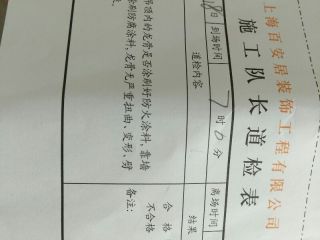 上海百安居装饰工程有限公司
施工队长道检表
日 到场时间 7时0分 离场时间
道检内容 结果
吊顶内的龙骨是否涂刷好防火涂料,靠墙 合格
涂刷防腐涂料,龙骨无严重扭曲、变形、劈 不合格
备注: